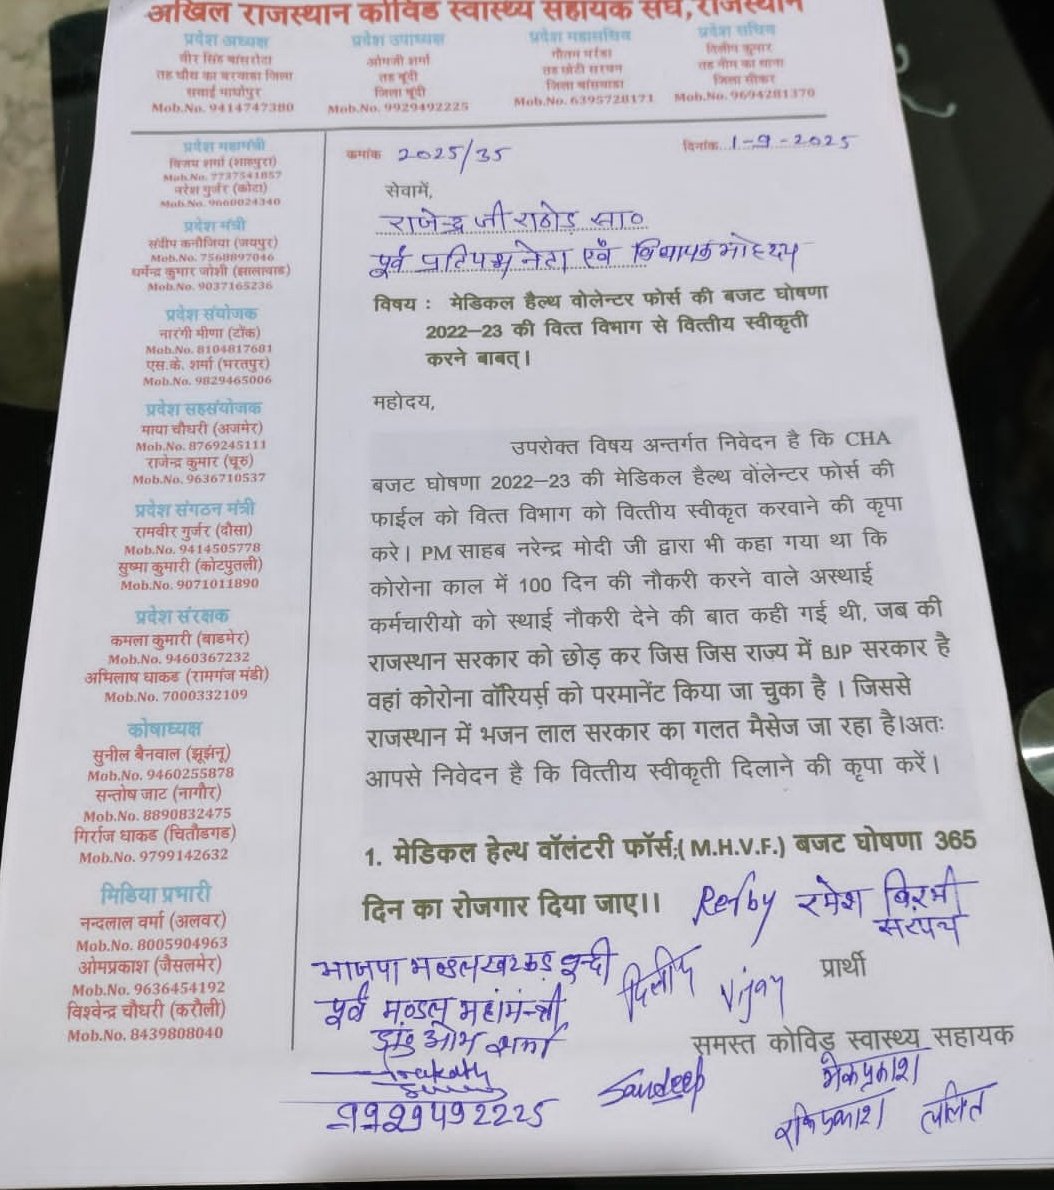 अखिल राजस्थान कोविड स्वास्थ्य सहायक संघ, राजस्थान
प्रदेश अध्यक्ष
वीर सिंह बांसरोटा
तह चौथ का बरवाडा जिला
सवाई माधोपुर
Mob.No. 9414747380
प्रदेश उपाध्यक्ष
ओमजी शर्मा
तह बूंदी
जिला बूंदी
Mob.No. 9929492225
प्रदेश महासचिव
गौतम
तह छोटी सरवन
जिला बांसवाडा
Mob.No. 6395728171
प्रदेश सचिव
दिलीप कुमार
तह नीम का थाना
जिला सीकर
Mob.No. 9694281370
प्रदेश महामंत्री
विजय शर्मा (शाहपुरा)
Mob.No. 7737541857
नरेश गुर्जर (कोटा)
Mob.No. 9660024340
प्रदेश मंत्री
संदीप कनौजिया (जयपुर)
Mob.No. 7568897046
धर्मेन्द्र कुमार जोशी (झालावाड)
Mob.No. 9037165236
प्रदेश संयोजक
नारंगी मीणा (टोंक)
Mob.No. 8104817681
एस.के. शर्मा (भरतपुर)
Mob.No. 9829465006
प्रदेश सहसंयोजक
माया चौधरी (अजमेर)
Mob.No. 8769245111
राजेन्द्र कुमार (चूरु)
Mob.No. 9636710537
प्रदेश संगठन मंत्री
रामवीर गुर्जर (दौसा)
Mob.No. 9414505778
सुष्मा कुमारी (कोटपुतली)
Mob.No. 9071011890
प्रदेश संरक्षक
कमला कुमारी (बाडमेर)
Mob.No. 9460367232
अभिलाष धाकड (रामगंज मंडी)
Mob.No. 7000332109
कोषाध्यक्ष
सुनील बैनवाल (झूझंनू)
Mob.No. 9460255878
सन्तोष जाट (नागौर)
Mob.No. 8890832475
गिर्राज धाकड (चितौडगड)
Mob.No. 9799142632
मिडिया प्रभारी
नन्दलाल वर्मा (अलवर)
Mob.No. 8005904963
ओमप्रकाश (जैसलमेर)
Mob.No. 9636454192
विश्वेन्द्र चौधरी (करौली)
Mob.No. 8439808040
क्रमांक 2025/35 दिनांक 1-9-2025
सेवामें,
राजेन्द्र जी राठोड सा०
पूर्व प्रतिपक्ष नेता एवं विधायक मोहदय
विषय : मेडिकल हैल्थ वोलेन्टर फोर्स की बजट घोषणा
2022–23 की वित्त विभाग से वित्तीय स्वीकृती
करने बाबत्।
महोदय,
उपरोक्त विषय अन्तर्गत निवेदन है कि CHA
बजट घोषणा 2022–23 की मेडिकल हैल्थ वोंलेन्टर फोर्स की
फाईल को वित्त विभाग को वित्तीय स्वीकृत करवाने की कृपा
करे। PM साहब नरेन्द्र मोदी जी द्वारा भी कहा गया था कि
कोरोना काल में 100 दिन की नौकरी करने वाले अस्थाई
कर्मचारीयो को स्थाई नौकरी देने की बात कही गई थी, जब की
राजस्थान सरकार को छोड़ कर जिस जिस राज्य में BJP सरकार है
वहां कोरोना वॉरियर्स् को परमानेंट किया जा चुका है । जिससे
राजस्थान में भजन लाल सरकार का गलत मैसेज जा रहा है।अतः
आपसे निवेदन है कि वित्तीय स्वीकृती दिलाने की कृपा करें।
1. मेडिकल हेल्थ वॉलंटरी फॉर्स:( M.H.V.F.) बजट घोषणा 365
दिन का रोजगार दिया जाए।।
Ref by रमेश बिरमी
सरपंच
भाजपा मण्डल खटकड़ बून्दी
पूर्व मण्डल महामंन्त्री
ओम शर्मा
9929492225
दिलीप
Vijay
Sandeep
प्रार्थी
समस्त कोविड़ स्वास्थ्य सहायक
ललित